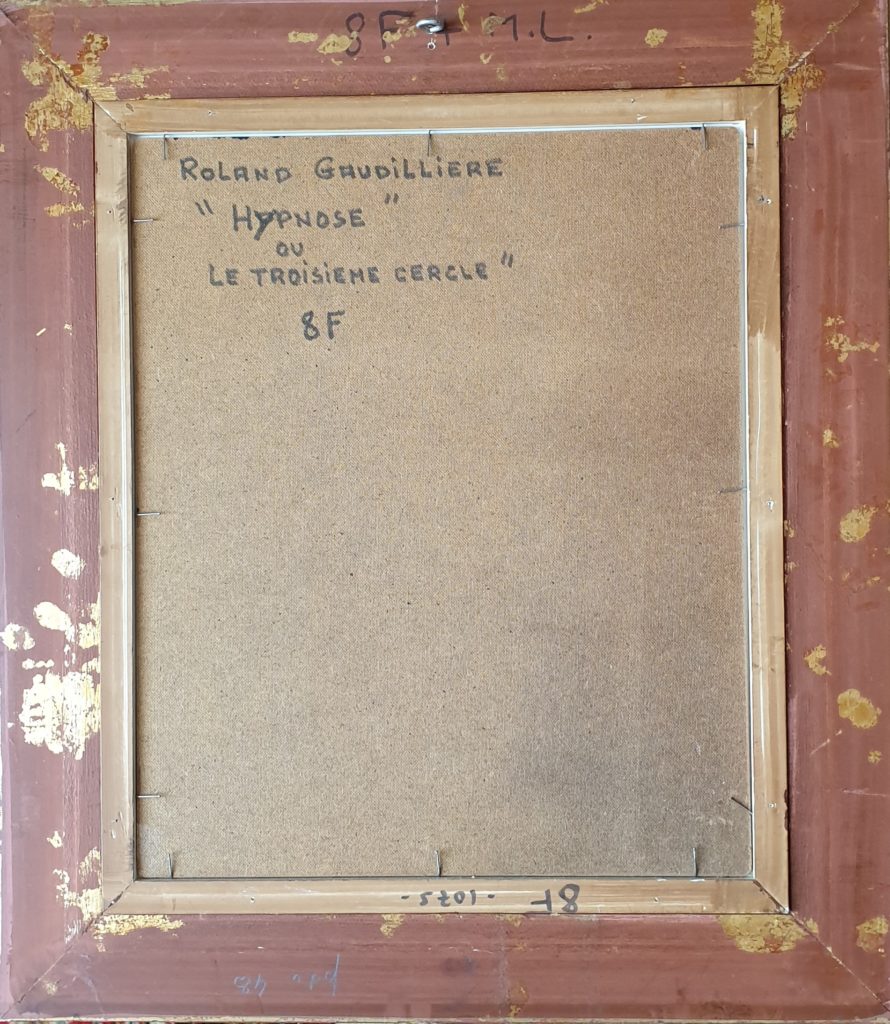 8F + M.L.
ROLAND GAUDILLIERE
" HYPNOSE "
OU
LE TROISIEME CERCLE "
8F
8F - 1075 -